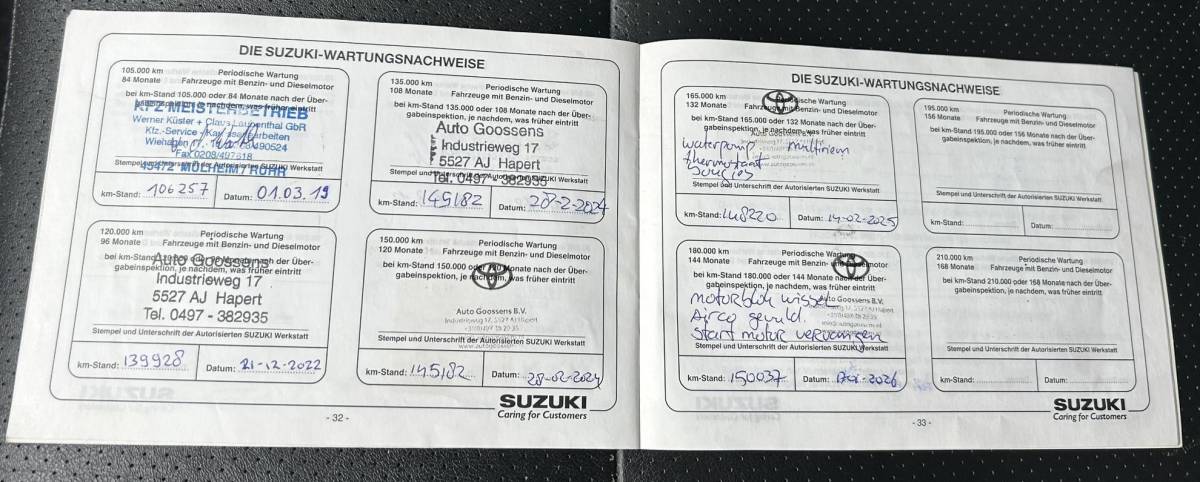 DIE SUZUKI-WARTUNGSNACHWEISE
105.000 km Periodische Wartung
84 Monate Fahrzeuge mit Benzin- und Dieselmotor
bei km-Stand 105.000 oder 84 Monate nach der Über-
je nachdem, was früher eintritt
KFZ-MEISTERBETRIEB
Werner Küster +
GbR
Kfz.-Service
Fax 0208/497618
45472 MÜLHEIM / RUHR
km-Stand: 106257 Datum: 01.03.19
135.000 km Periodische Wartung
108 Monate Fahrzeuge mit Benzin- und Dieselmotor
bei km-Stand 135.000 oder 108 Monate nach der Über-
gabeinspektion, je nachdem, was früher eintritt
Auto Goossens
Industrieweg 17
5527 AJ Hapert
Tel. 0497 - 382935
Stempel und Unterschrift der Autorisierten SUZUKI Werkstatt
km-Stand: 145182 Datum: 28-2-2024
120.000 km Periodische Wartung
96 Monate Fahrzeuge mit Benzin- und Dieselmotor
bei km-Stand 120.000 oder 96 Monate nach der Über-
gabeinspektion, je nachdem, was früher eintritt
Auto Goossens
Industrieweg 17
5527 AJ Hapert
Tel. 0497 - 382935
Stempel und Unterschrift der Autorisierten SUZUKI Werkstatt
km-Stand: 139928 Datum: 21-12-2022
150.000 km Periodische Wartung
120 Monate Fahrzeuge mit Benzin- und Dieselmotor
bei km-Stand 150.000 oder 120 Monate nach der Über-
gabeinspektion, je nachdem, was früher eintritt
Auto Goossens B.V.
Industrieweg 17, 5527 AJ Hapert
Stempel und Unterschrift der Autorisierten SUZUKI Werkstatt
km-Stand: 145182 Datum: 28-02-2024
SUZUKI
Caring for Customers
- 32 -
DIE SUZUKI-WARTUNGSNACHWEISE
165.000 km Periodische Wartung
132 Monate Fahrzeuge mit Benzin- und Dieselmotor
bei km-Stand 165.000 oder 132 Monate nach der Über-
gabeinspektion, je nachdem, was früher eintritt
waterpomp multiriem
thermostaat
bougies
Stempel und Unterschrift der Autorisierten SUZUKI Werkstatt
km-Stand: 148220 Datum: 14-02-2025
195.000 km Periodische Wartung
156 Monate Fahrzeuge mit Benzin- und Dieselmotor
bei km-Stand 195.000 oder 156 Monate nach der Über-
gabeinspektion, je nachdem, was früher eintritt
Stempel und Unterschrift der Autorisierten SUZUKI Werkstatt
km-Stand: Datum:
180.000 km Periodische Wartung
144 Monate Fahrzeuge mit Benzin- und Dieselmotor
bei km-Stand 180.000 oder 144 Monate nach der Über-
gabeinspektion, je nachdem, was früher eintritt
Auto Goossens B.V.
motorblok wissel
Airco gevuld.
Start motor vervangen
Stempel und Unterschrift der Autorisierten SUZUKI Werkstatt
km-Stand: 150037 Datum: 2026
210.000 km Periodische Wartung
168 Monate Fahrzeuge mit Benzin- und Dieselmotor
bei km-Stand 210.000 oder 168 Monate nach der Über-
gabeinspektion, je nachdem, was früher eintritt
Stempel und Unterschrift der Autorisierten SUZUKI Werkstatt
km-Stand: Datum:
SUZUKI
Caring for Customers
- 33 -